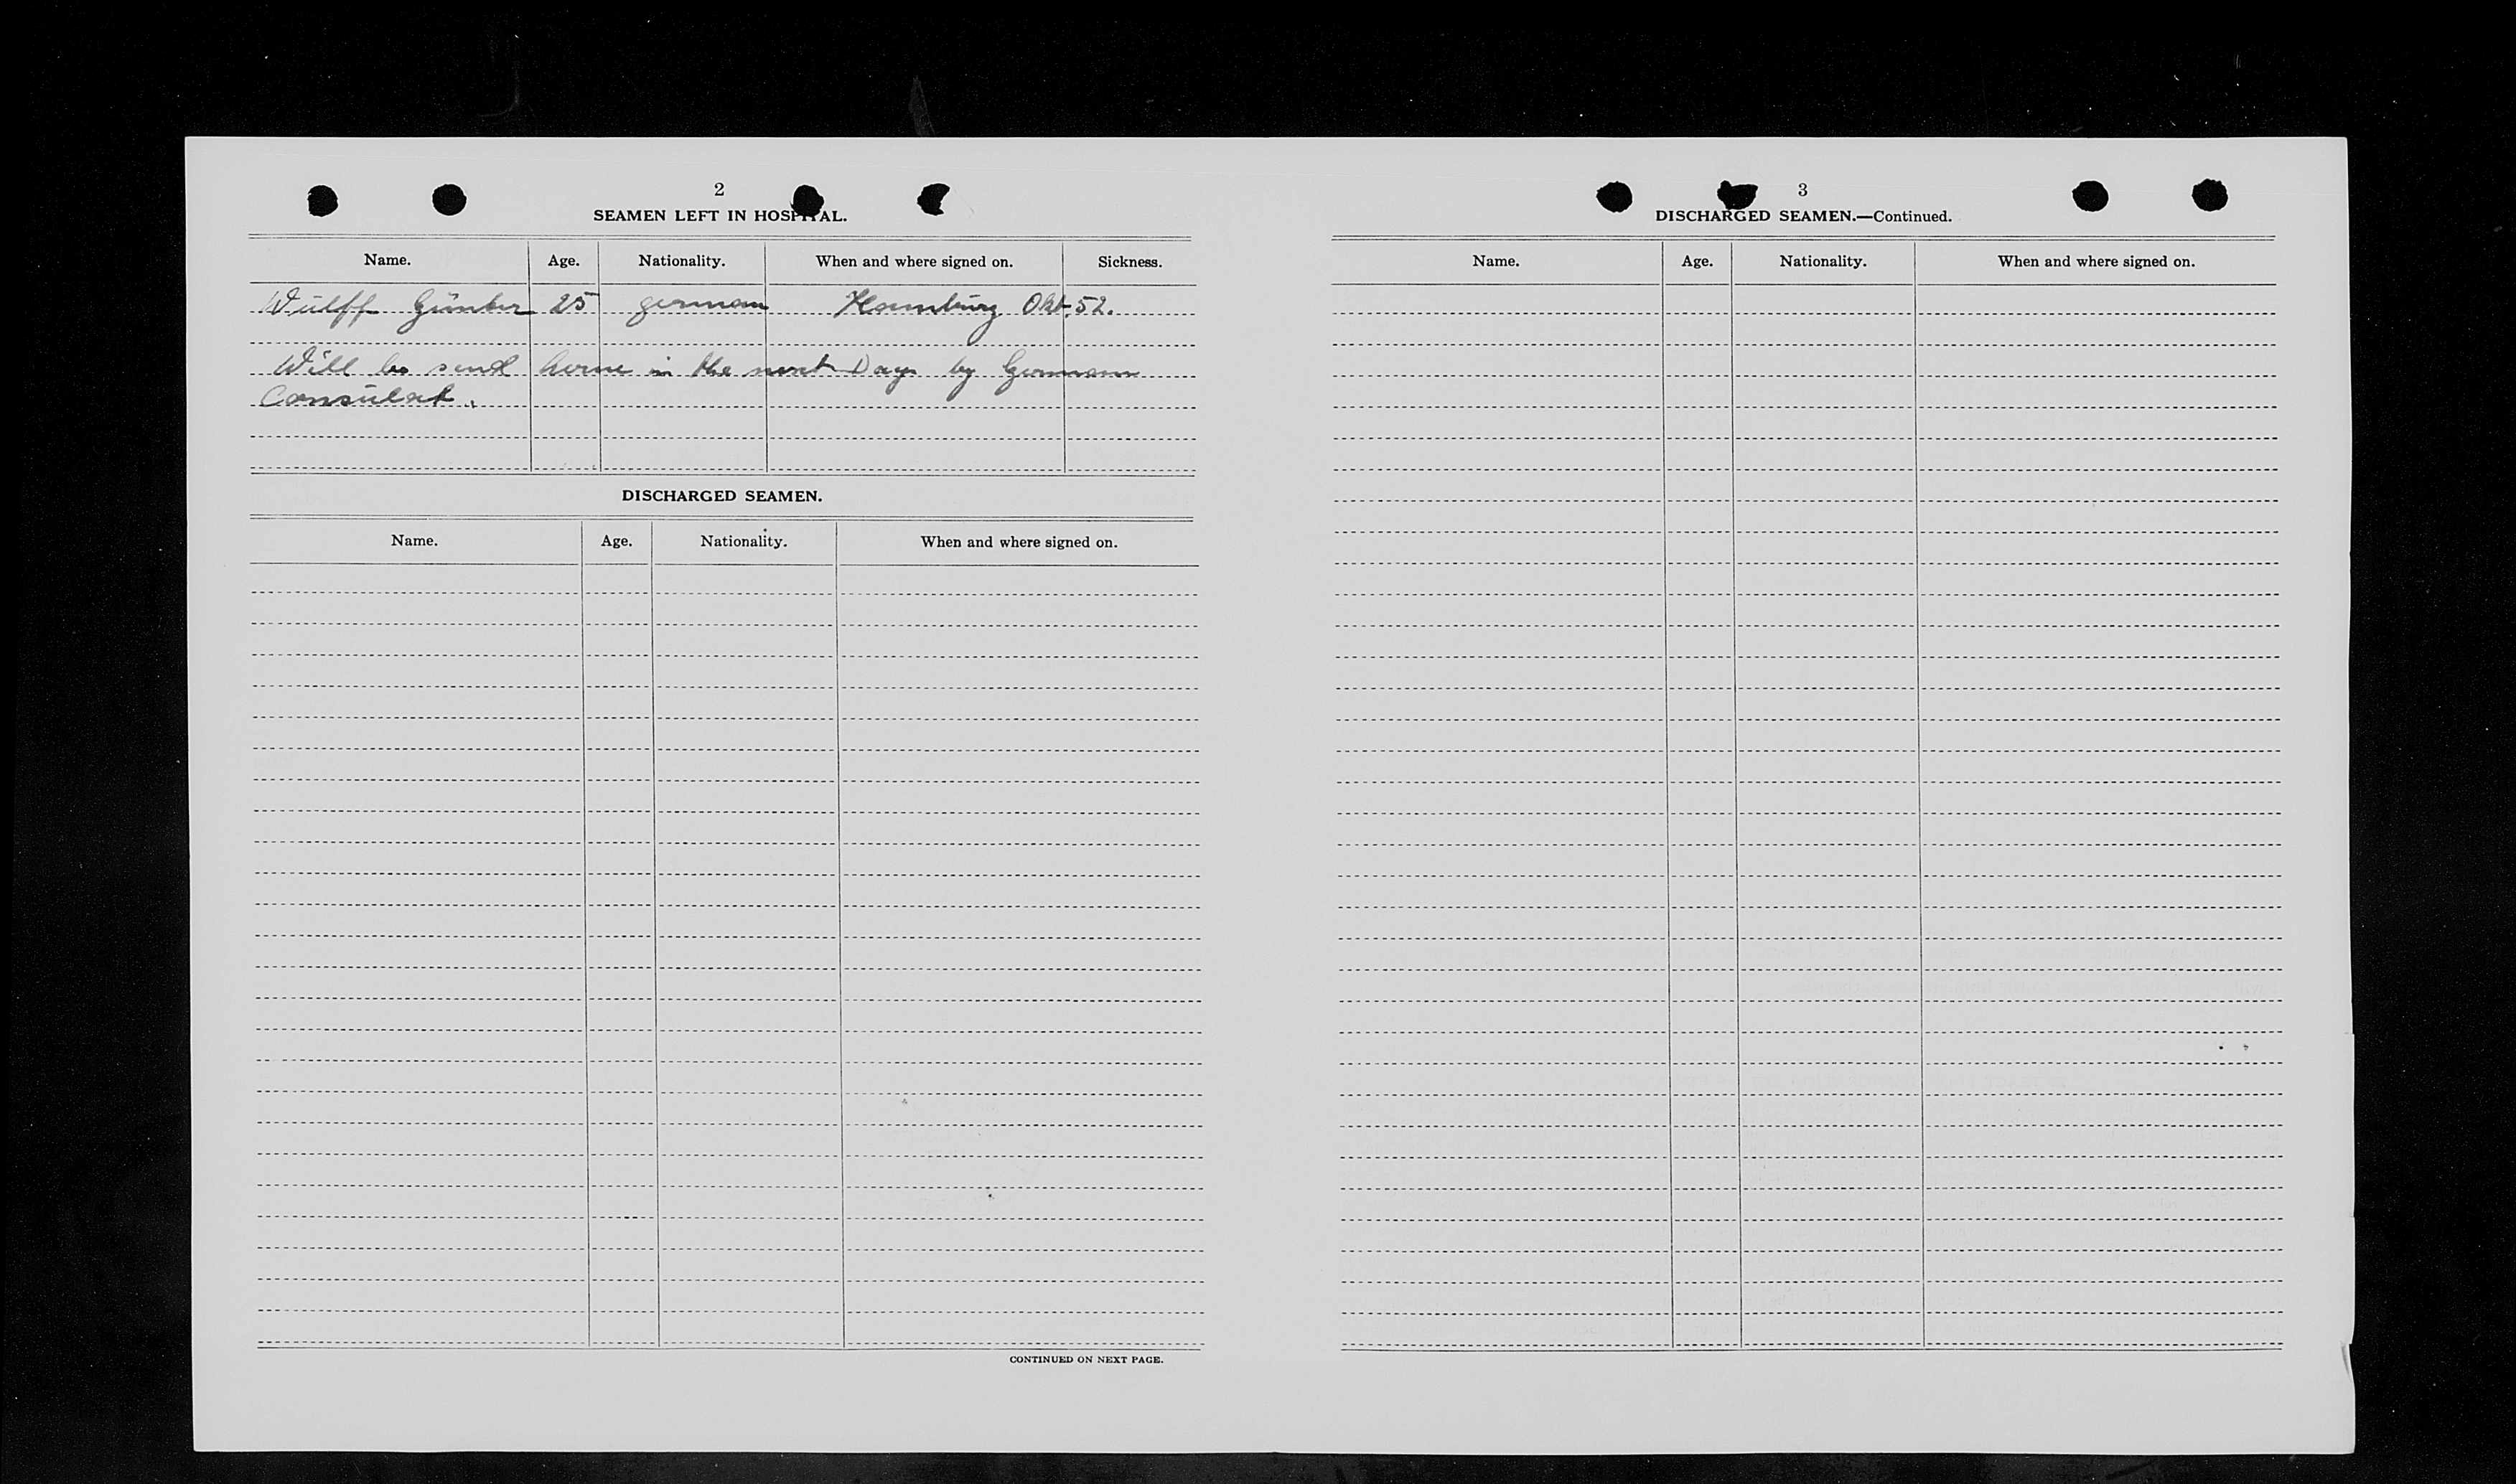 2
SEAMEN LEFT IN HOSPITAL.
Name. Age. Nationality. When and where signed on. Sickness.
Wulff Günter 25 german Hamburg Okt. 52.
Will be send home in the next Days by German
Consulat.
DISCHARGED SEAMEN.
Name. Age. Nationality. When and where signed on.
CONTINUED ON NEXT PAGE.
3
DISCHARGED SEAMEN.—Continued.
Name. Age. Nationality. When and where signed on.